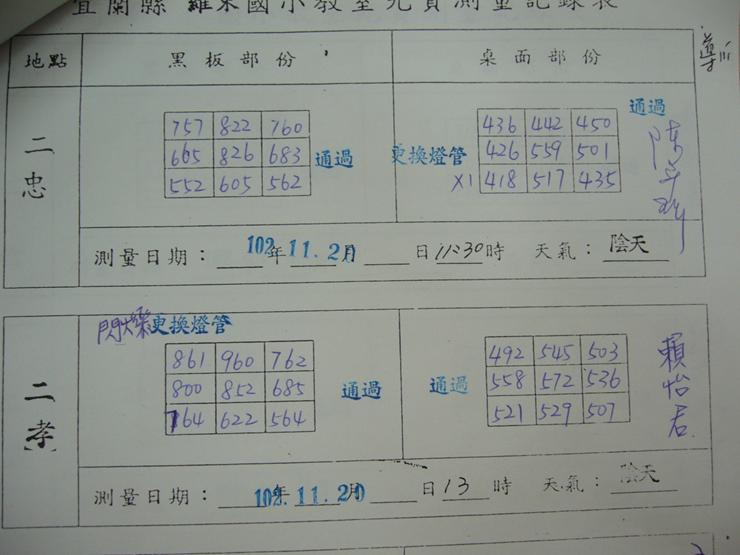 宜蘭縣 羅東國小教室光質測量記錄表
地點 黑板部份 桌面部份
二忠
757 822 760
665 826 683
552 605 562
通過
更換燈管
X1
436 442 450
426 559 501
418 517 435
通過
測量日期： 102年 11. 20 日 11:30時 天氣： 陰天
二孝
閃爍更換燈管
861 960 762
800 852 685
764 622 564
通過
通過
492 545 503
558 572 536
521 529 507
賴怡君
測量日期： 102年 11. 20 日 13 時 天氣： 陰天